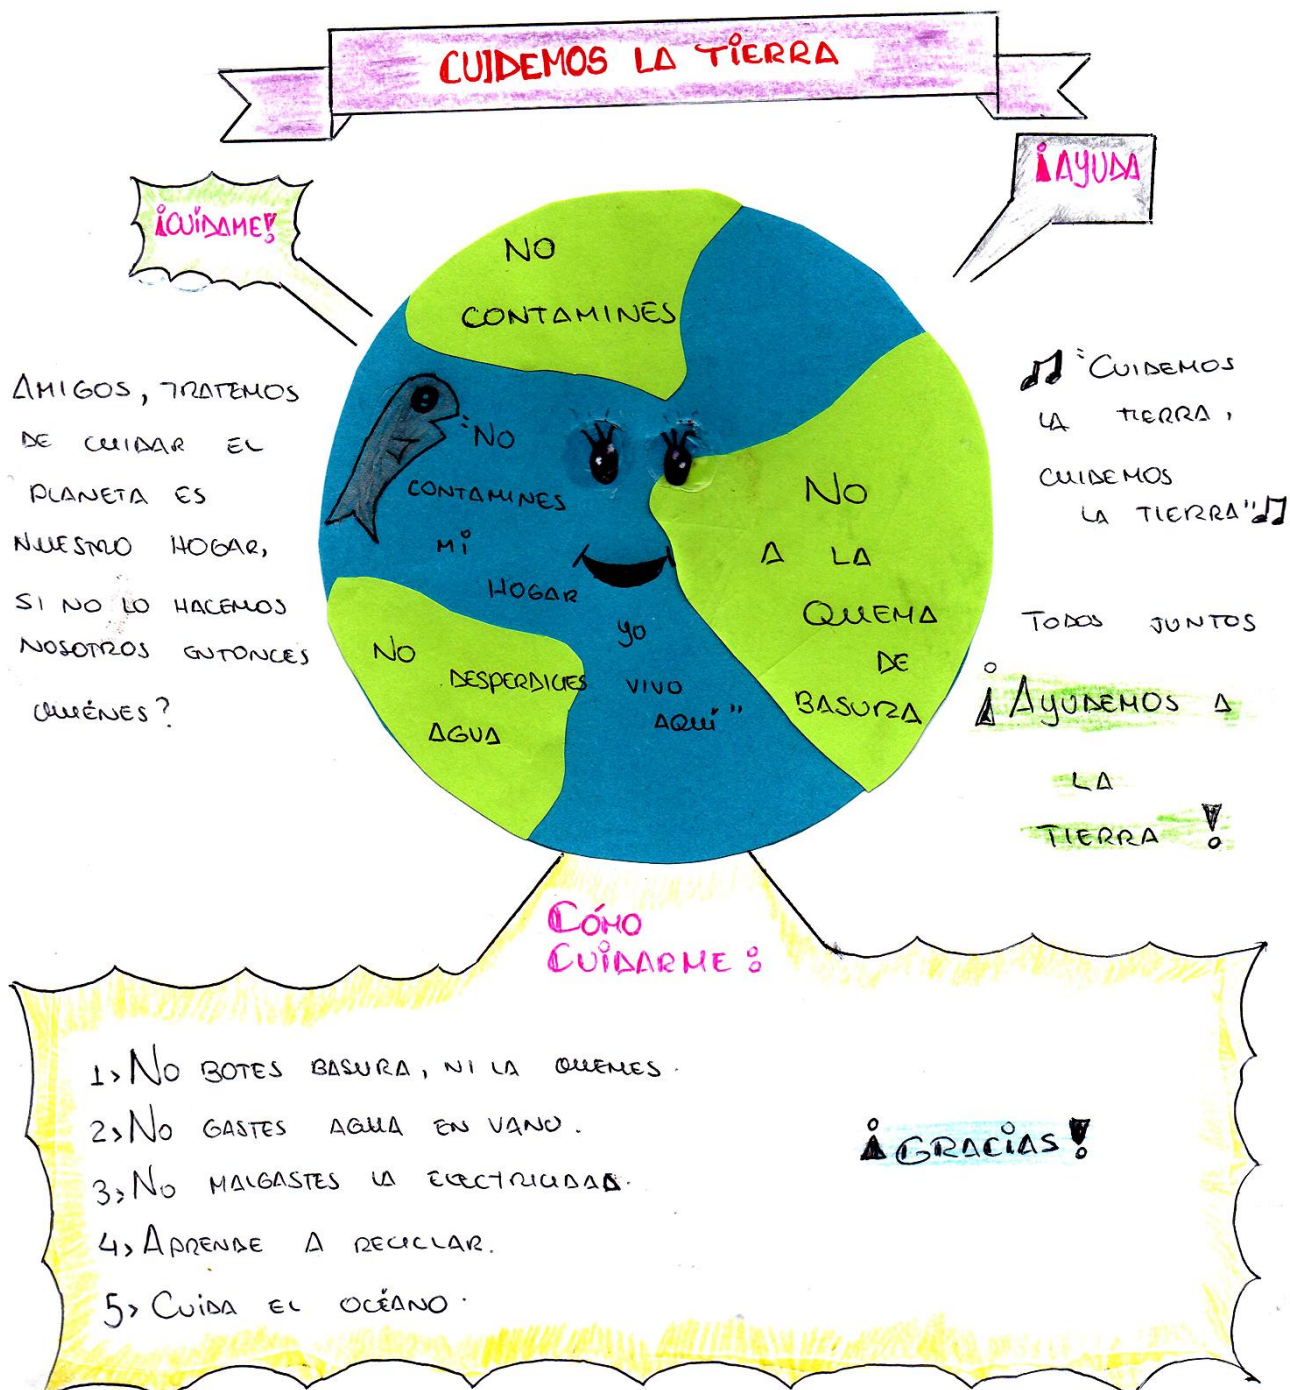 CUIDEMOS LA TIERRA
¡CUÍDAME!
¡AYUDA
AMIGOS, TRATEMOS
DE CUIDAR EL
PLANETA ES
NUESTRO HOGAR,
SI NO LO HACEMOS
NOSOTROS ENTONCES
QUIÉNES?
NO
CONTAMINES
"NO
CONTAMINES
MI
HOGAR
YO
VIVO
AQUÍ"
NO
A LA
QUEMA
DE
BASURA
NO
DESPERDICIES
AGUA
"CUIDEMOS
LA TIERRA,
CUIDEMOS
LA TIERRA"
TODOS JUNTOS
¡AYUDEMOS A
LA
TIERRA!
CÓMO
CUIDARME:
1> NO BOTES BASURA, NI LA QUEMES.
2> NO GASTES AGUA EN VANO.
3> NO MALGASTES LA ELECTRICIDAD.
4> APRENDE A RECICLAR.
5> CUIDA EL OCÉANO.
¡GRACIAS!